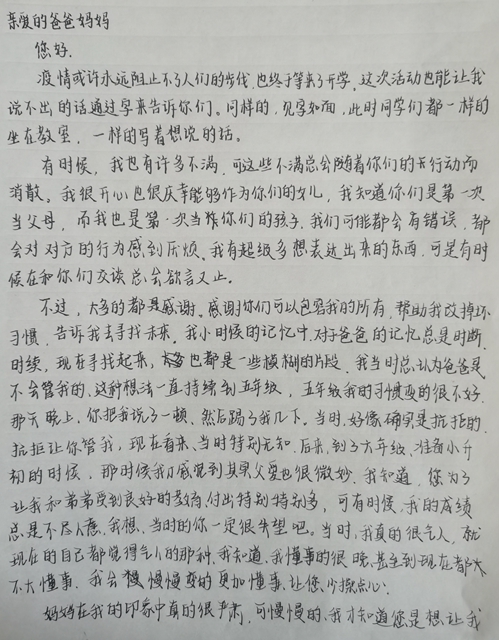 亲爱的爸爸妈妈
您好.
疫情或许永远阻止不了人们的步伐,也终于等来了开学。这次活动也能让我
说不出的话通过字来告诉你们。同样的,见字如面,此时同学们都一样的
坐在教室,一样的写着想说的话。
有时候,我也有许多不满,可这些不满总会随着你们的行动而
消散。我很开心也很庆幸能够作为你们的女儿,我知道你们是第一次
当父母,而我也是第一次当你们的孩子,我们可能都会有错误,都
会对对方的行为感到厌烦。我有超级多想表达出来的东西,可是有时
候在和你们交谈总会欲言又止。
不过,大多的都是感谢。感谢你们可以包容我的所有,帮助我改掉坏
习惯,告诉我去寻找未来。我小时候的记忆中,对于爸爸的记忆总是时断
时续,现在寻找起来,也都是一些模糊的片段。我当时总认为爸爸是
不会管我的、这种想法一直持续到五年级,五年级我的习惯变的很不好.
那天晚上,你把我说了一顿,然后踢了我几下。当时,好像确实是抗拒的.
抗拒让你管我,现在看来,当时特别无知.后来,到了六年级,准备小升
初的时候,那时候我才感觉到其实父爱也很微妙.我知道,您为了
让我和弟弟受到良好的教育,付出特别特别多,可有时候,我的成绩
总是不尽人意,我想,当时的你一定很失望吧。当时,我真的很气人,就
现在的自己都觉得气人的那种.我知道,我懂事的很晚,甚至到现在都太
不大懂事.我会慢慢变的更加懂事,让您少操点心.
妈妈在我的印象中真的很严肃,可慢慢的,我才知道您是想让我